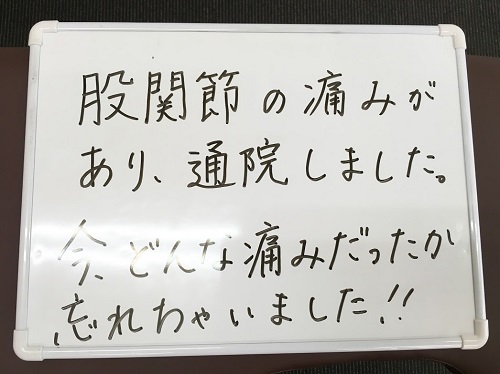 股関節の痛みが
あり、通院しました。
今、どんな痛みだったか
忘れちゃいました!!